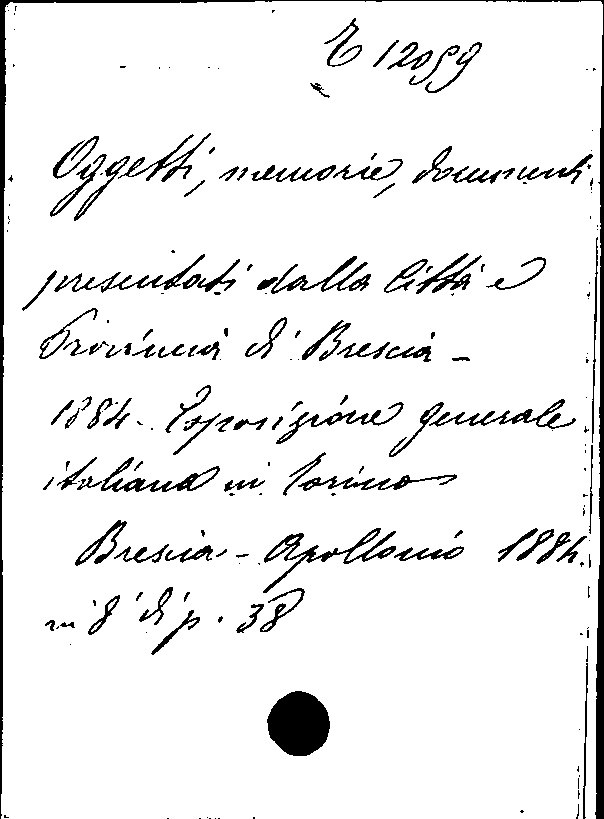 E 12059
Oggetti, memorie, documenti
presentati dalla Città e
Provincia di Brescia -
1884. Esposizione generale
italiana in Torino
Brescia - Apollonio 1884.
in 8° di p. 38